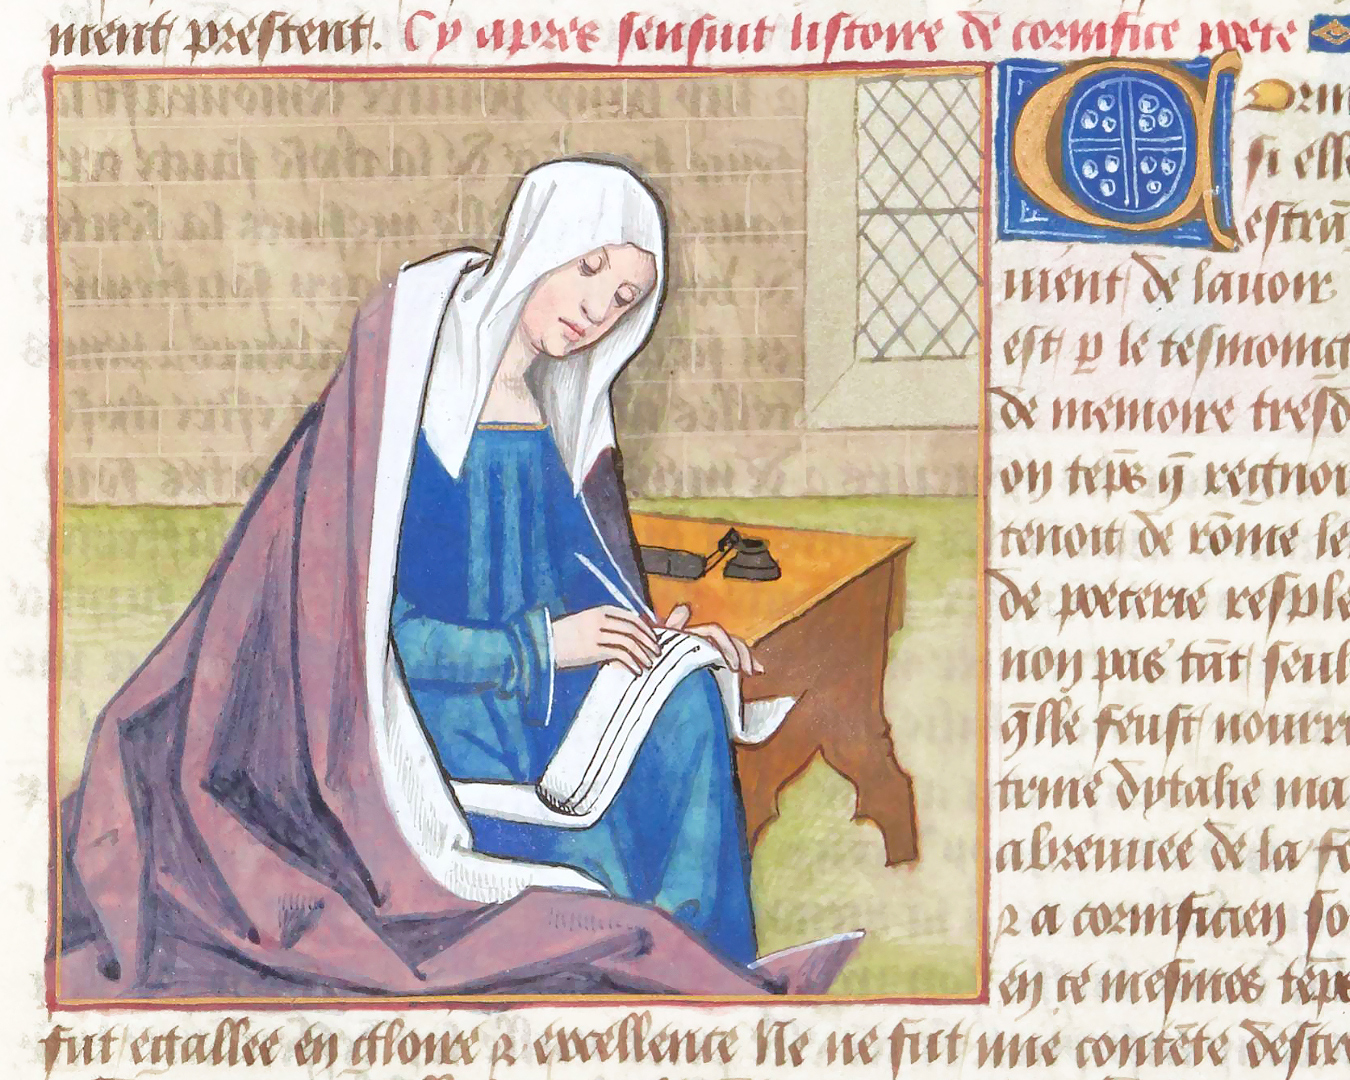 ment prestent. Cy apres sensuit listoire de cornifice poete
Corni
si elle
estrā
ment de lauoir
est ꝑ le tesmoing
de memoire tresd
on tēps q̄ regnoi
tenoit de rōme le
de poeterie resple
non pas tāt seul
q̄lle feust nourr
trine dytalie ma
abreuuee de la fo
ꝛ a cornificien so
en ce mesmes tēps
fut egallee en gloire ꝛ excellence Ne ne fut une contēte destre